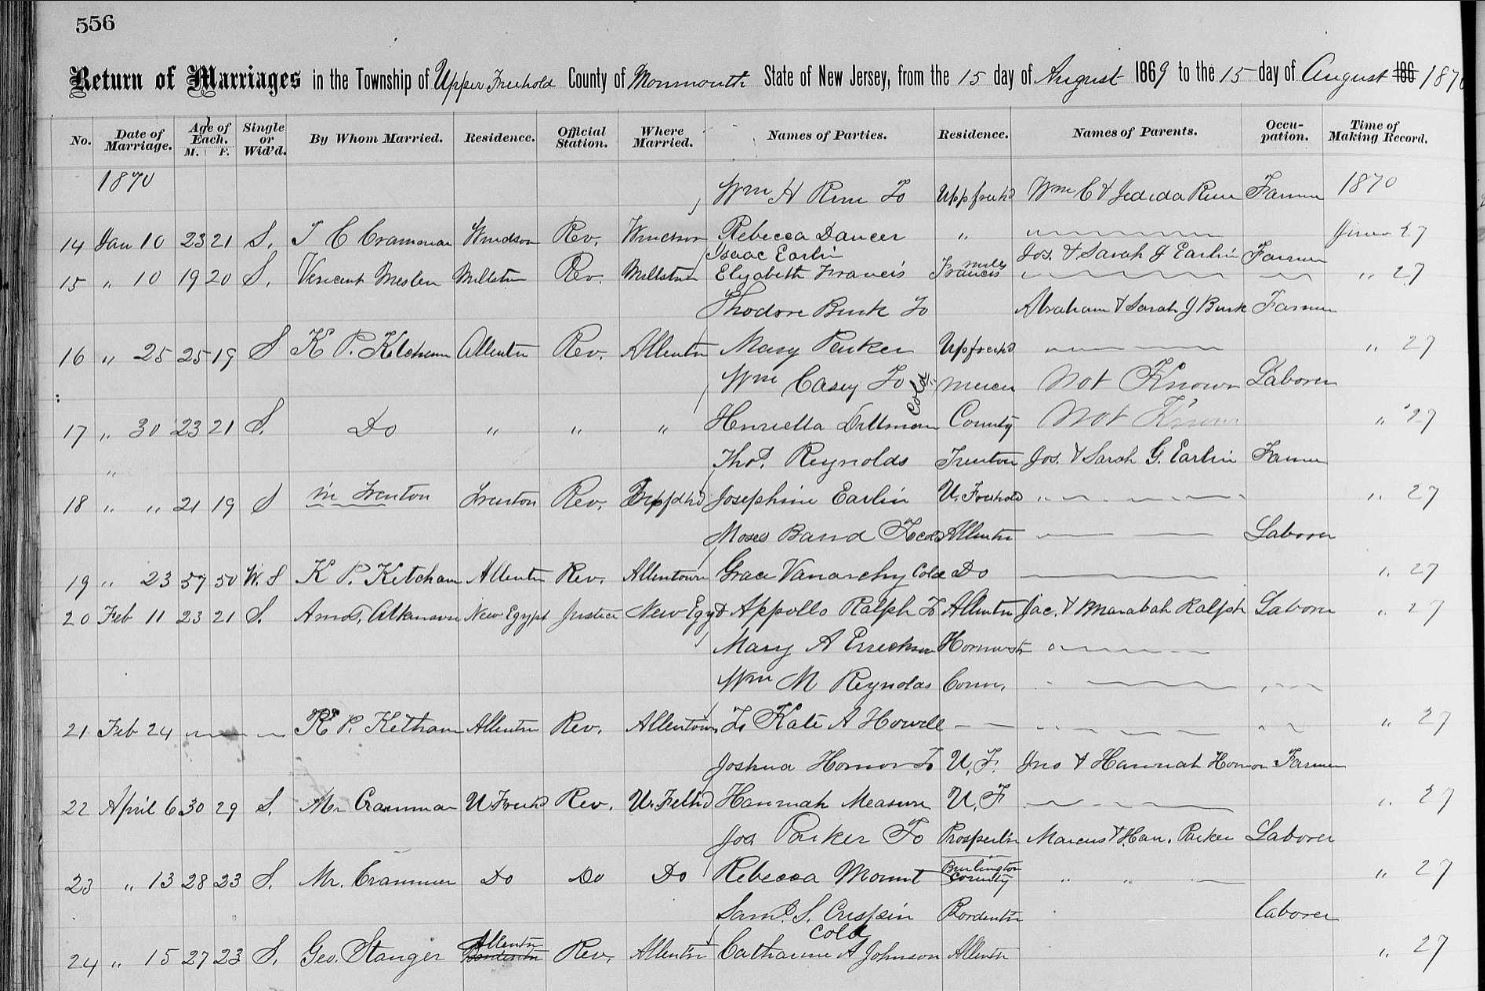 556
Return of Marriages in the Township of Upper Freehold County of Monmouth State of New Jersey, from the 15 day of August 1869 to the 15 day of August 186 1870
No. Date of Marriage. Age of Each. M. F. Single or Wid'd. By Whom Married. Residence. Official Station. Where Married. Names of Parties. Residence. Names of Parents. Occupation. Time of Making Record.
1870 Wm H Rim To Uppfreehd Wm C & Jedida Rim Farmer 1870
14 Jan 10 23 21 S. J C Cramman Windson Rev. Windson Rebecca Dancer " June 27
Isaac Earlin Jos. & Sarah J Earlin Farmer
15 " 10 19 20 S. Vincent Millstn Rev. Millstn Elizabeth Francis Francis mills " 27
Thodore Burk To Abraham & Sarah J Burk Farmer
16 " 25 25 19 S K P. Ketcham Allentn Rev. Allentn Mary Parker Upfreehd " 27
Wm Casey To Cold Mercer Not Known Laborer
17 " 30 23 21 S. Do " " " Henriella Dillman County Not Known " 27
" Thos. Reynolds Trenton Jos. & Sarah G. Earlin Farmer
18 " " 21 19 S in Trenton Trenton Rev. Josephine Earlin U. Freehold " 27
Moses Band To cold Allentn Laborer
19 " 23 57 50 W. S K P. Ketcham Allentn Rev. Allentown Grace Vanarchy Cold Do " 27
20 Feb 11 23 21 S. Amos. Atkinson New Egypt Justice New Egypt Appollo Ralph To Allentn Jac. & Marabah Ralph Laborer " 27
Mary A Errickson Hornerstn
Wm M Reynolds Conn.
21 Feb 24 K P. Ketcham Allentn Rev. Allentown To Kate A Howell " 27
Joshua Hornor To U. F. Jno & Hannah Hornor Farmer
22 April 6 30 29 S. Mr Cramman U Freehd Rev. Up. Hannah Measure U. F " 27
Jos Parker To Prospertin Marcus & Han. Parker Laborer
23 " 13 28 23 S. Mr. Crammer Do Do Do Rebecca Mount Burlington County " " " 27
Saml S. Crispin Bordentn laborer
24 " 15 27 23 S. Geo. Stanger Allentn Bordentn Rev. Allentn Catharine A Johnson Cold Allentn " 27